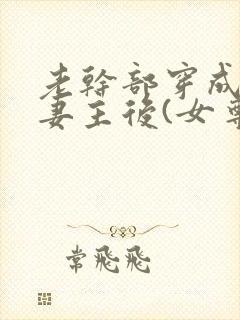 老幹部穿成
妻主後(女尊
常飛飛